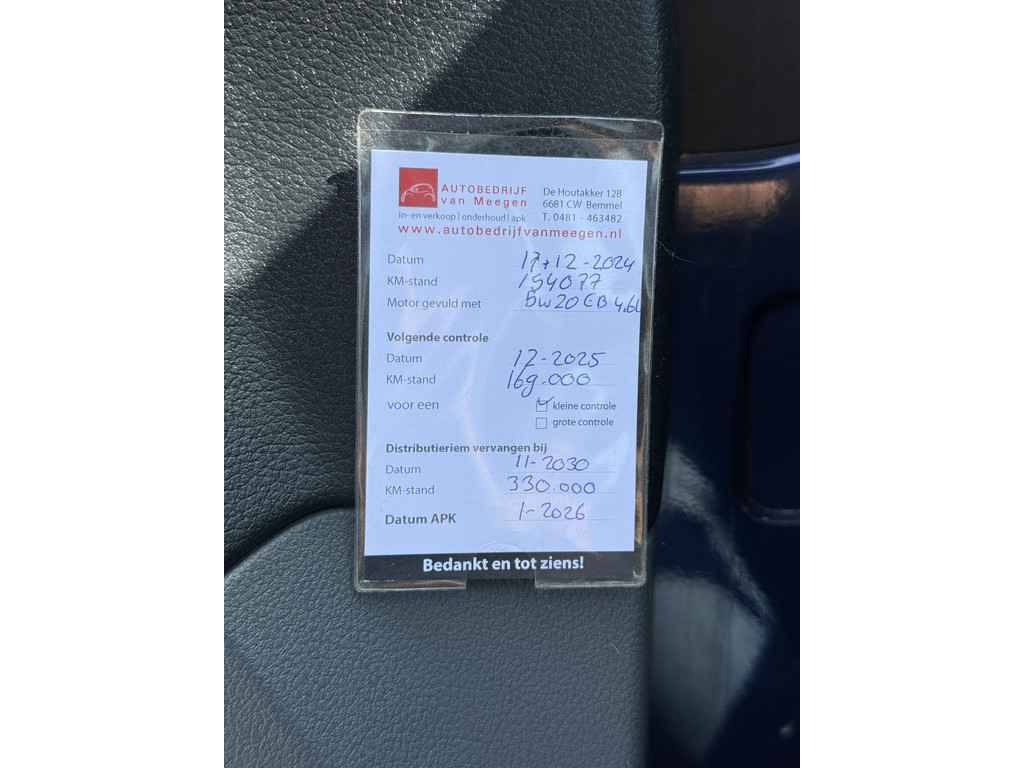 AUTOBEDRIJF
van Meegen
in- en verkoop | onderhoud | apk
De Houtakker 128
6681 CW Bemmel
T. 0481 - 463482
www.autobedrijfvanmeegen.nl
Datum 17-12-2024
KM-stand 154077
Motor gevuld met 5w20 4.6L
Volgende controle
Datum 12-2025
KM-stand 169.000
voor een kleine controle
grote controle
Distributieriem vervangen bij
Datum 11-2030
KM-stand 330.000
Datum APK 1-2026
Bedankt en tot ziens!